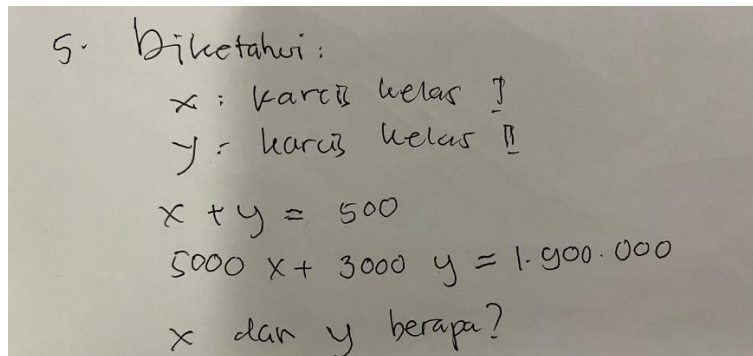 5. Diketahui:
x : karcis kelas I
y : karcis kelas II
x + y = 500
5000 x + 3000 y = 1.900.000
x dan y berapa?